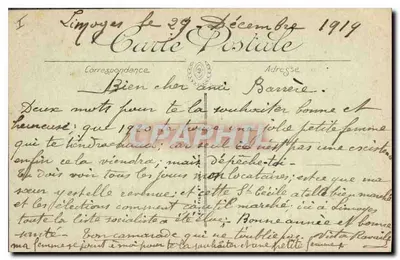 Limoges le 29 Décembre 1919
Carte Postale
Correspondance Adresse
Bien cher ami Barrère.
Deux mots pour te la souhaiter bonne et
heureuse: que 1920 te donne une jolie petite femme
qui te tiendra chaud; car seul ce n'est pas une existence
enfin cela viendra, mais dépêche-toi.
tu dois voir tous les jours mon locataires; est ce que ma
sœur y est elle connue; et cette Ste Cécile a t elle bien marché
et les élections comment ça a t il marché ici à Limoges
toute la liste socialiste a été élue; Bonne année et bonne
santé - Ton camarade qui ne t'oublie pas
ma femme se joint à moi pour te la souhaiter et une petite femme